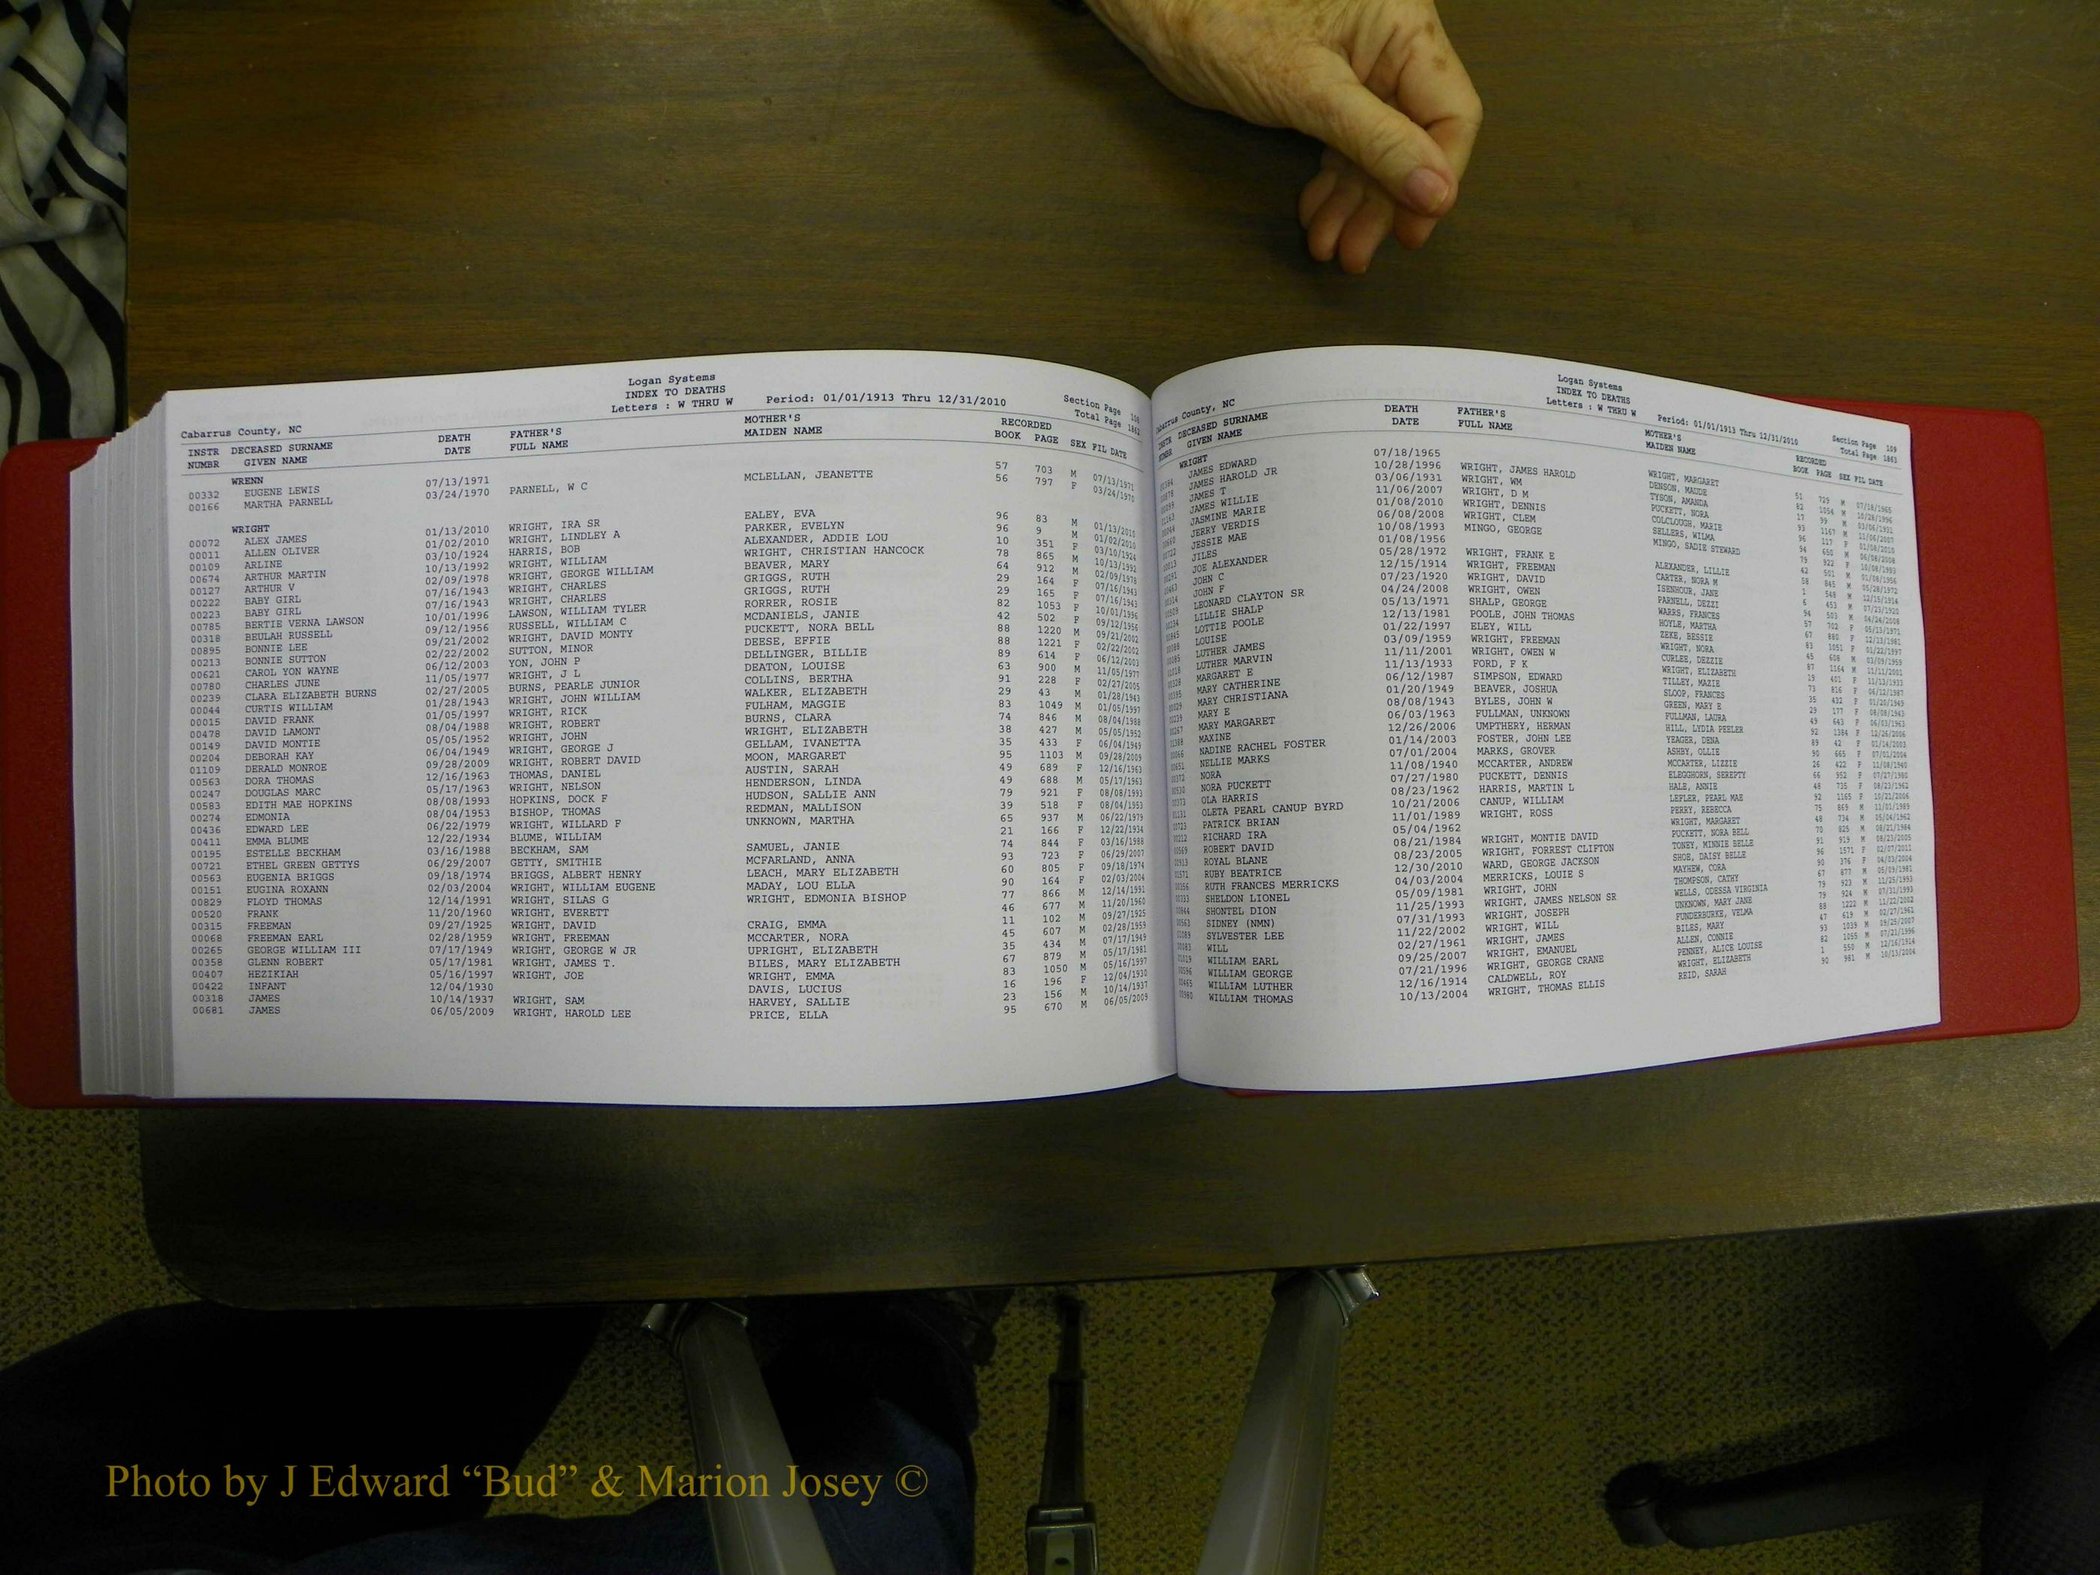 Logan Systems
INDEX TO DEATHS
Letters : W THRU W Period: 01/01/1913 Thru 12/31/2010
Section Page 108
Total Page 1862
Cabarrus County, NC
INSTR DECEASED SURNAME DEATH FATHER'S MOTHER'S RECORDED
NUMBR GIVEN NAME DATE FULL NAME MAIDEN NAME BOOK PAGE SEX FIL DATE
WRENN
00332 EUGENE LEWIS 07/13/1971 57 703 M 07/13/1971
00166 MARTHA PARNELL 03/24/1970 PARNELL, W C MCLELLAN, JEANETTE 56 797 F 03/24/1970
WRIGHT
00072 ALEX JAMES 01/13/2010 WRIGHT, IRA SR EALEY, EVA 96 83 M 01/13/2010
00011 ALLEN OLIVER 01/02/2010 WRIGHT, LINDLEY A PARKER, EVELYN 96 9 M 01/02/2010
00109 ARLINE 03/10/1924 HARRIS, BOB ALEXANDER, ADDIE LOU 10 351 F 03/10/1924
00674 ARTHUR MARTIN 10/13/1992 WRIGHT, WILLIAM WRIGHT, CHRISTIAN HANCOCK 78 865 M 10/13/1992
00127 ARTHUR V 02/09/1978 WRIGHT, GEORGE WILLIAM BEAVER, MARY 64 912 M 02/09/1978
00222 BABY GIRL 07/16/1943 WRIGHT, CHARLES GRIGGS, RUTH 29 164 F 07/16/1943
00223 BABY GIRL 07/16/1943 WRIGHT, CHARLES GRIGGS, RUTH 29 165 F 07/16/1943
00785 BERTIE VERNA LAWSON 10/01/1996 LAWSON, WILLIAM TYLER RORRER, ROSIE 82 1053 F 10/01/1996
00318 BEULAH RUSSELL 09/12/1956 RUSSELL, WILLIAM C MCDANIELS, JANIE 42 502 F 09/12/1956
00895 BONNIE LEE 09/21/2002 WRIGHT, DAVID MONTY PUCKETT, NORA BELL 88 1220 M 09/21/2002
00213 BONNIE SUTTON 02/22/2002 SUTTON, MINOR DEESE, EFFIE 88 1221 F 02/22/2002
00621 CAROL YON WAYNE 06/12/2003 YON, JOHN P DELLINGER, BILLIE 89 614 F 06/12/2003
00780 CHARLES JUNE 11/05/1977 WRIGHT, J L DEATON, LOUISE 63 900 M 11/05/1977
00239 CLARA ELIZABETH BURNS 02/27/2005 BURNS, PEARLE JUNIOR COLLINS, BERTHA 91 228 F 02/27/2005
00044 CURTIS WILLIAM 01/28/1943 WRIGHT, JOHN WILLIAM WALKER, ELIZABETH 29 43 M 01/28/1943
00015 DAVID FRANK 01/05/1997 WRIGHT, RICK FULHAM, MAGGIE 83 1049 M 01/05/1997
00478 DAVID LAMONT 08/04/1988 WRIGHT, ROBERT BURNS, CLARA 74 846 M 08/04/1988
00149 DAVID MONTIE 05/05/1952 WRIGHT, JOHN WRIGHT, ELIZABETH 38 427 M 05/05/1952
00204 DEBORAH KAY 06/04/1949 WRIGHT, GEORGE J GELLAM, IVANETTA 35 433 F 06/04/1949
01109 DERALD MONROE 09/28/2009 WRIGHT, ROBERT DAVID MOON, MARGARET 95 1103 M 09/28/2009
00563 DORA THOMAS 12/16/1963 THOMAS, DANIEL AUSTIN, SARAH 49 689 F 12/16/1963
00247 DOUGLAS MARC 05/17/1963 WRIGHT, NELSON HENDERSON, LINDA 49 688 M 05/17/1963
00583 EDITH MAE HOPKINS 08/08/1993 HOPKINS, DOCK F HUDSON, SALLIE ANN 79 921 F 08/08/1993
00274 EDMONIA 08/04/1953 BISHOP, THOMAS REDMAN, MALLISON 39 518 F 08/04/1953
00436 EDWARD LEE 06/22/1979 WRIGHT, WILLARD F UNKNOWN, MARTHA 65 937 M 06/22/1979
00411 EMMA BLUME 12/22/1934 BLUME, WILLIAM 21 166 F 12/22/1934
00195 ESTELLE BECKHAM 03/16/1988 BECKHAM, SAM SAMUEL, JANIE 74 844 F 03/16/1988
00721 ETHEL GREEN GETTYS 06/29/2007 GETTY, SMITHIE MCFARLAND, ANNA 93 723 F 06/29/2007
00563 EUGENIA BRIGGS 09/18/1974 BRIGGS, ALBERT HENRY LEACH, MARY ELIZABETH 60 805 F 09/18/1974
00151 EUGINA ROXANN 02/03/2004 WRIGHT, WILLIAM EUGENE MADAY, LOU ELLA 90 164 F 02/03/2004
00829 FLOYD THOMAS 12/14/1991 WRIGHT, SILAS G WRIGHT, EDMONIA BISHOP 77 866 M 12/14/1991
00520 FRANK 11/20/1960 WRIGHT, EVERETT 46 677 M 11/20/1960
00315 FREEMAN 09/27/1925 WRIGHT, DAVID CRAIG, EMMA 11 102 M 09/27/1925
00068 FREEMAN EARL 02/28/1959 WRIGHT, FREEMAN MCCARTER, NORA 45 607 M 02/28/1959
00265 GEORGE WILLIAM III 07/17/1949 WRIGHT, GEORGE W JR UPRIGHT, ELIZABETH 35 434 M 07/17/1949
00358 GLENN ROBERT 05/17/1981 WRIGHT, JAMES T. BILES, MARY ELIZABETH 67 879 M 05/17/1981
00407 HEZIKIAH 05/16/1997 WRIGHT, JOE WRIGHT, EMMA 83 1050 M 05/16/1997
00422 INFANT 12/04/1930 DAVIS, LUCIUS 16 196 F 12/04/1930
00318 JAMES 10/14/1937 WRIGHT, SAM HARVEY, SALLIE 23 156 M 10/14/1937
00681 JAMES 06/05/2009 WRIGHT, HAROLD LEE PRICE, ELLA 95 670 M 06/05/2009
Logan Systems
INDEX TO DEATHS
Letters : W THRU W Period: 01/01/1913 Thru 12/31/2010
Section Page 109
Total Page 1863
Cabarrus County, NC
INSTR DECEASED SURNAME DEATH FATHER'S MOTHER'S RECORDED
NUMBR GIVEN NAME DATE FULL NAME MAIDEN NAME BOOK PAGE SEX FIL DATE
WRIGHT
JAMES EDWARD 07/18/1965 WRIGHT, MARGARET 51 729 M 07/18/1965
JAMES HAROLD JR 10/28/1996 WRIGHT, JAMES HAROLD DENSON, MAUDE 82 1054 M 10/28/1996
JAMES T 03/06/1931 WRIGHT, WM TYSON, AMANDA 17 99 M 03/06/1931
JAMES WILLIE 11/06/2007 WRIGHT, D M PUCKETT, NORA 93 1167 M 11/06/2007
JASMINE MARIE 01/08/2010 WRIGHT, DENNIS COLCLOUGH, MARIE 96 117 F 01/08/2010
JERRY VERDIS 06/08/2008 WRIGHT, CLEM SELLERS, WILMA 94 650 M 06/08/2008
JESSIE MAE 10/08/1993 MINGO, GEORGE MINGO, SADIE STEWARD 79 922 F 10/08/1993
JILES 01/08/1956 42 501 M 01/08/1956
JOE ALEXANDER 05/28/1972 WRIGHT, FRANK E ALEXANDER, LILLIE 58 845 M 05/28/1972
JOHN C 12/15/1914 WRIGHT, FREEMAN CARTER, NORA M 1 549 M 12/15/1914
JOHN F 07/23/1920 WRIGHT, DAVID ISENHOUR, JANE 6 453 M 07/23/1920
LEONARD CLAYTON SR 04/24/2008 WRIGHT, OWEN PARNELL, DEZZI 94 503 M 04/24/2008
LILLIE SHALP 05/13/1971 SHALP, GEORGE WARRS, FRANCES 57 702 F 05/13/1971
LOTTIE POOLE 12/13/1981 POOLE, JOHN THOMAS HOYLE, MARTHA 67 880 F 12/13/1981
LOUISE 01/22/1997 ELEY, WILL ZEKE, BESSIE 83 1051 F 01/22/1997
LUTHER JAMES 03/09/1959 WRIGHT, FREEMAN WRIGHT, NORA 45 608 M 03/09/1959
LUTHER MARVIN 11/11/2001 WRIGHT, OWEN W CURLEE, DEZZIE 87 1164 M 11/11/2001
MARGARET E 11/13/1933 FORD, F K WRIGHT, ELIZABETH 19 401 F 11/13/1933
MARY CATHERINE 06/12/1987 SIMPSON, EDWARD TILLEY, MAZIE 73 816 F 06/12/1987
MARY CHRISTIANA 01/20/1949 BEAVER, JOSHUA SLOOP, FRANCES 35 432 F 01/20/1949
MARY E 08/08/1943 BYLES, JOHN W GREEN, MARY E 29 177 F 08/08/1943
MARY MARGARET 06/03/1963 FULLMAN, UNKNOWN FULLMAN, LAURA 49 643 F 06/03/1963
MAXINE 12/26/2006 UMPTHERY, HERMAN HILL, LYDIA PEELER 92 1384 F 12/26/2006
NADINE RACHEL FOSTER 01/14/2003 FOSTER, JOHN LEE YEAGER, DENA 89 42 F 01/14/2003
NELLIE MARKS 07/01/2004 MARKS, GROVER ASHBY, OLLIE 90 665 F 07/01/2004
NORA 11/08/1940 MCCARTER, ANDREW MCCARTER, LIZZIE 26 422 F 11/08/1940
NORA PUCKETT 07/27/1980 PUCKETT, DENNIS ELEGGHORN, SEREPTY 66 952 F 07/27/1980
OLA HARRIS 08/23/1962 HARRIS, MARTIN L HALE, ANNIE 48 735 F 08/23/1962
OLETA PEARL CANUP BYRD 10/21/2006 CANUP, WILLIAM LEFLER, PEARL MAE 92 1165 F 10/21/2006
PATRICK BRIAN 11/01/1989 WRIGHT, ROSS PERRY, REBECCA 75 869 M 11/01/1989
RICHARD IRA 05/04/1962 WRIGHT, MARGARET 48 734 M 05/04/1962
ROBERT DAVID 08/21/1984 WRIGHT, MONTIE DAVID PUCKETT, NORA BELL 70 825 M 08/21/1984
ROYAL BLANE 08/23/2005 WRIGHT, FORREST CLIFTON TONEY, MINNIE BELLE 91 919 M 08/23/2005
RUBY BEATRICE 12/30/2010 WARD, GEORGE JACKSON SHOE, DAISY BELLE 96 1571 F 02/07/2011
RUTH FRANCES MERRICKS 04/03/2004 MERRICKS, LOUIE S MAYHEW, CORA 90 376 F 04/03/2004
SHELDON LIONEL 05/09/1981 WRIGHT, JOHN THOMPSON, CATHY 67 877 M 05/09/1981
SHONTEL DION 11/25/1993 WRIGHT, JAMES NELSON SR WELLS, ODESSA VIRGINIA 79 923 M 11/25/1993
SIDNEY (NMN) 07/31/1993 WRIGHT, JOSEPH UNKNOWN, MARY JANE 79 924 M 07/31/1993
SYLVESTER LEE 11/22/2002 WRIGHT, WILL FUNDERBURKE, VELMA 88 1222 M 11/22/2002
WILL 02/27/1961 WRIGHT, JAMES BILES, MARY 47 619 M 02/27/1961
WILLIAM EARL 09/25/2007 WRIGHT, EMANUEL ALLEN, CONNIE 93 1039 M 09/25/2007
WILLIAM GEORGE 07/21/1996 WRIGHT, GEORGE CRANE PENNEY, ALICE LOUISE 82 1055 M 07/21/1996
WILLIAM LUTHER 12/16/1914 CALDWELL, ROY WRIGHT, ELIZABETH 1 550 M 12/16/1914
WILLIAM THOMAS 10/13/2004 WRIGHT, THOMAS ELLIS REID, SARAH 90 981 M 10/13/2004
Photo by J Edward “Bud” & Marion Josey ©